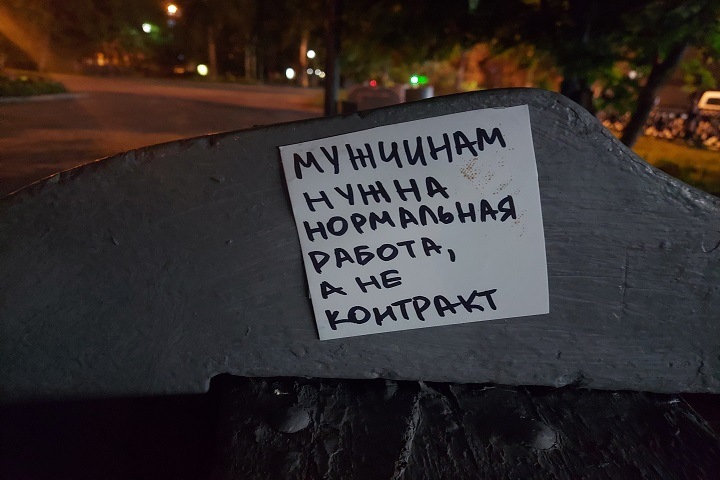 МУЖЧИНАМ
НУЖНА
НОРМАЛЬНАЯ
РАБОТА,
А НЕ
КОНТРАКТ